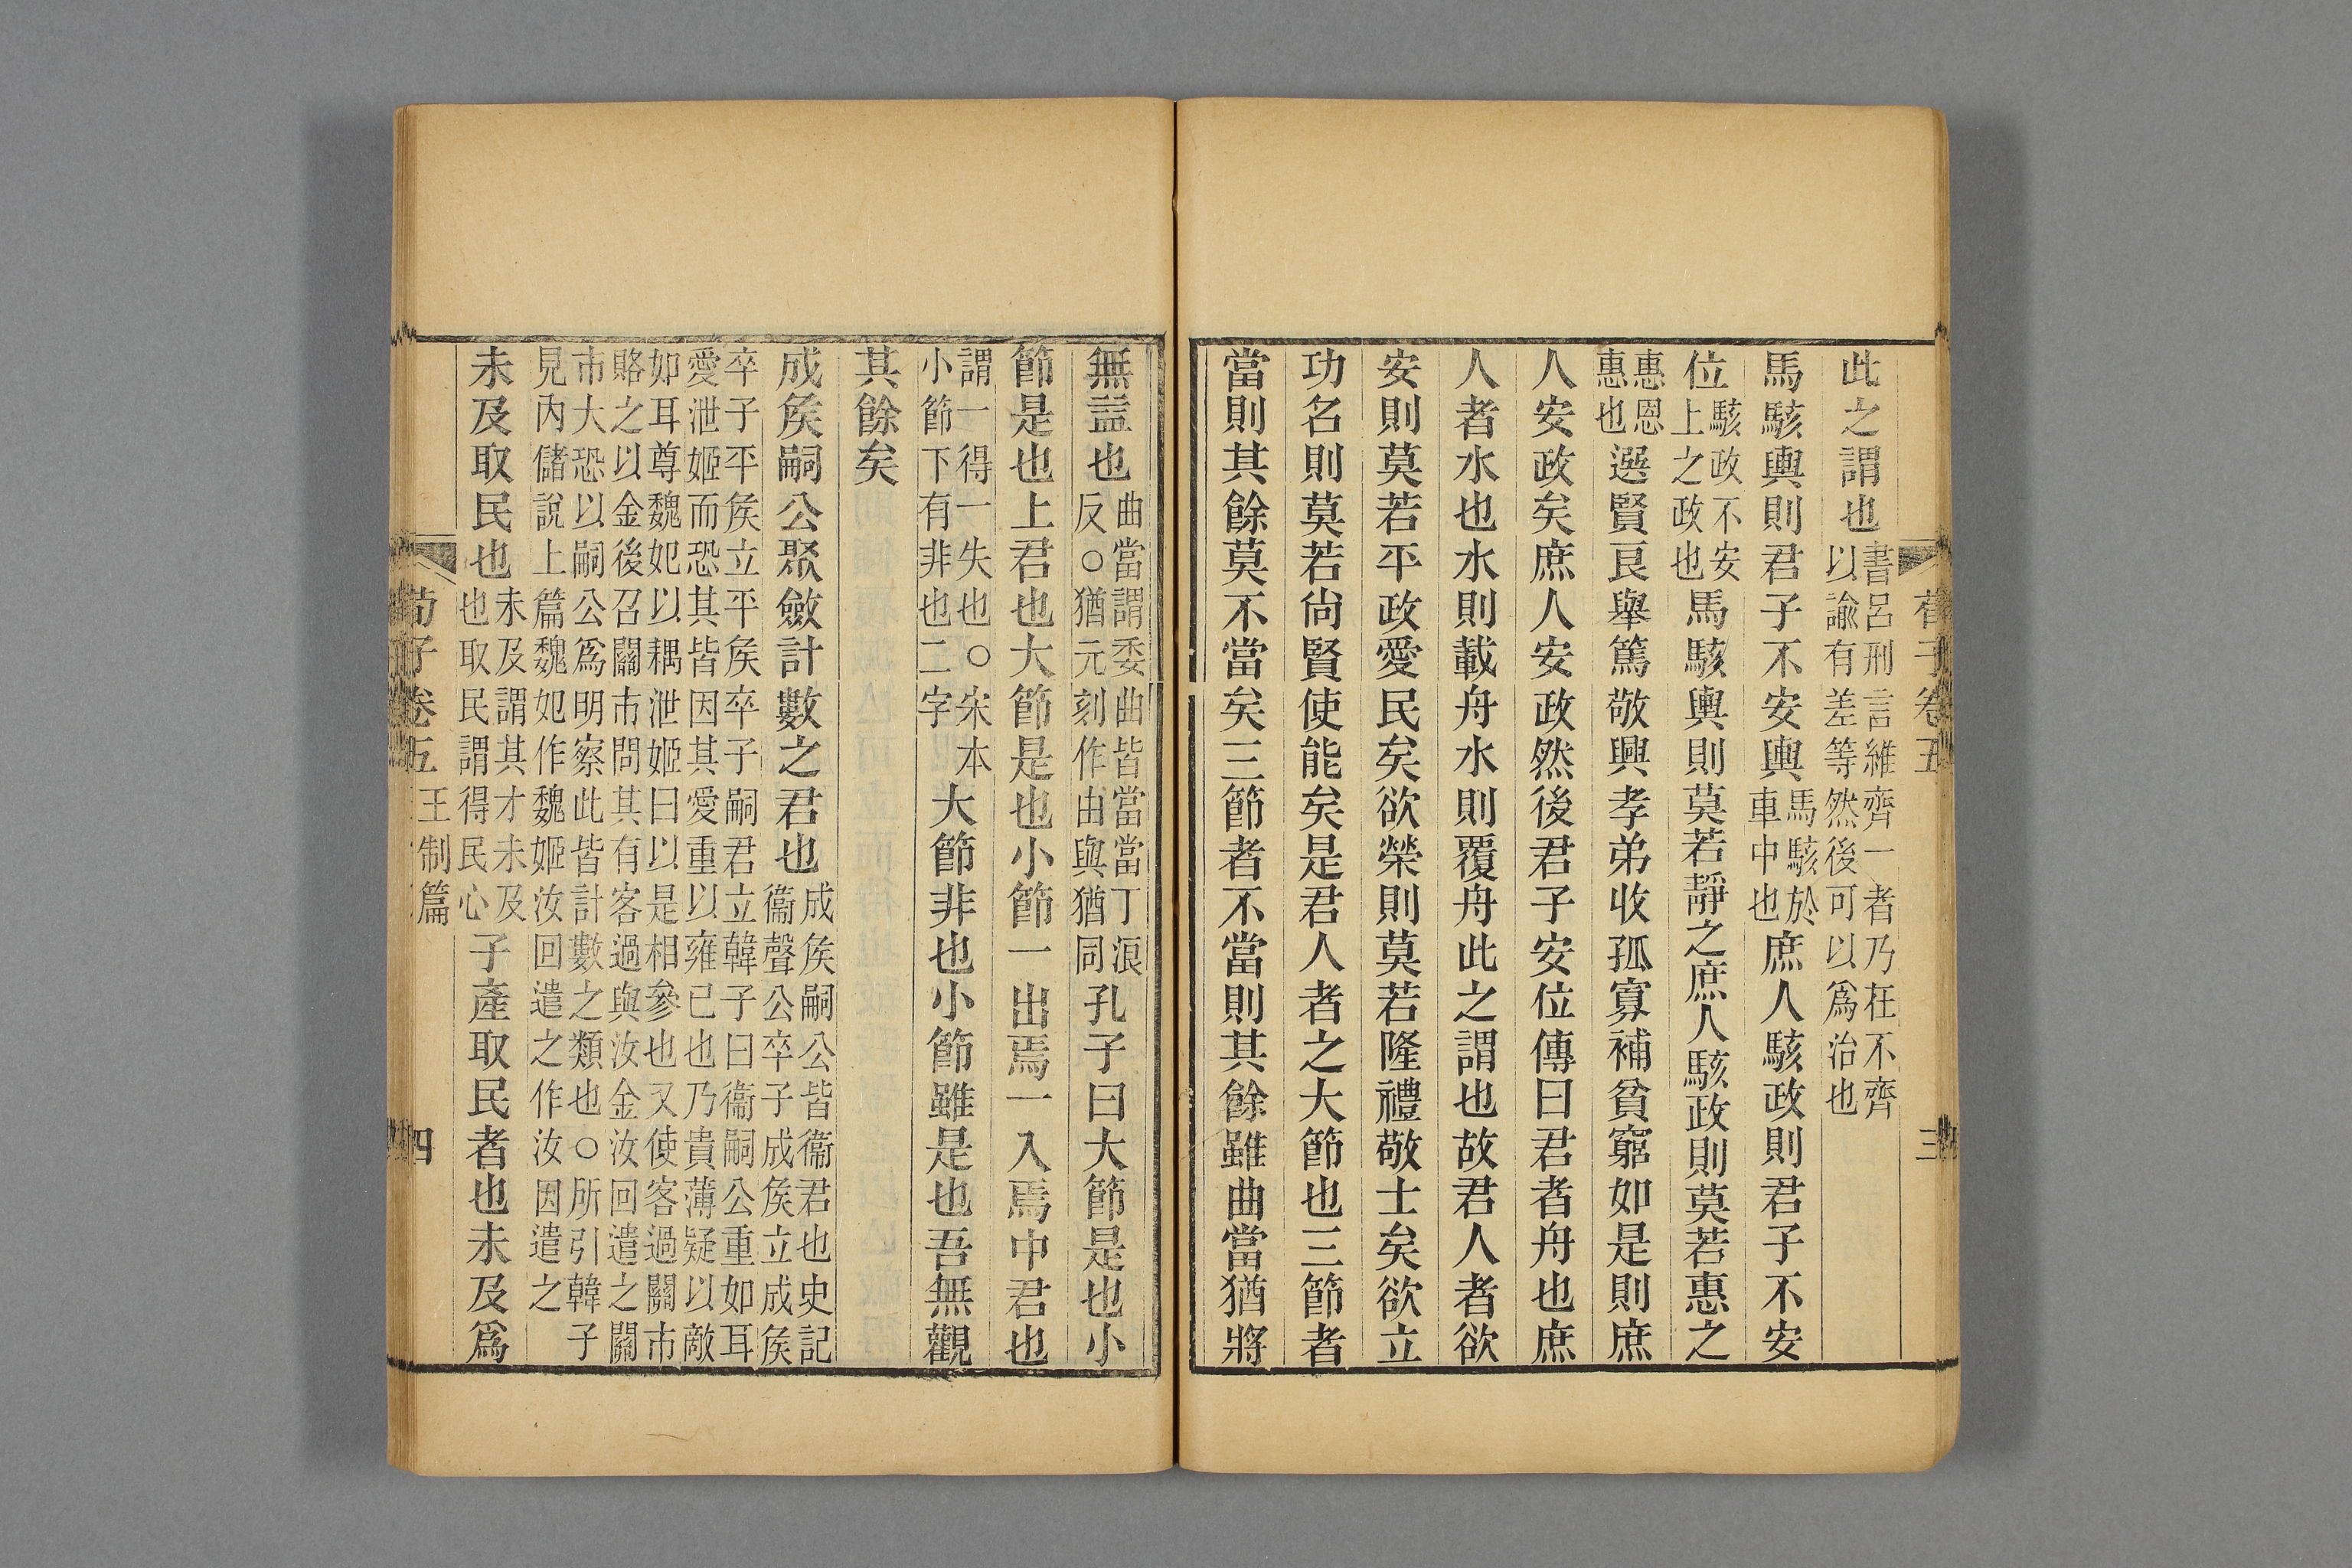 荀子卷五 三
此之謂也書呂刑言維齊一者乃在不齊以諭有差等然後可以爲治也
馬駭輿則君子不安輿馬駭於車中也庶人駭政則君子不安
位駭政不安上之政也馬駭輿則莫若靜之庶人駭政則莫若惠之
惠恩惠也選賢良舉篤敬興孝弟收孤寡補貧窮如是則庶
人安政矣庶人安政然後君子安位傳曰君者舟也庶
人者水也水則載舟水則覆舟此之謂也故君人者欲
安則莫若平政愛民矣欲榮則莫若隆禮敬士矣欲立
功名則莫若尙賢使能矣是君人者之大節也三節者
當則其餘莫不當矣三節者不當則其餘雖曲當猶將
無益也曲當謂委曲皆當當丁浪反○猶元刻作由與猶同孔子曰大節是也小
節是也上君也大節是也小節一出焉一入焉中君也
謂一得一失也○宋本小節下有非也二字大節非也小節雖是也吾無觀
其餘矣
成矦嗣公聚斂計數之君也成矦嗣公皆衞君也史記衞聲公卒子成矦立成矦
卒子平矦立平矦卒子嗣君立韓子曰衞嗣公重如耳
愛泄姬而恐其皆因其愛重以雍已也乃貴薄疑以敵
如耳尊魏妃以耦泄姬曰以是相參也又使客過關市
賂之以金後召關市問其有客過與汝金汝回遣之關
市大恐以嗣公爲明察此皆計數之類也○所引韓子
見內儲說上篇魏妃作魏姬汝回遣之作汝因遣之
未及取民也未及謂其才未及也取民謂得民心子產取民者也未及爲
荀子卷五 王制篇 四